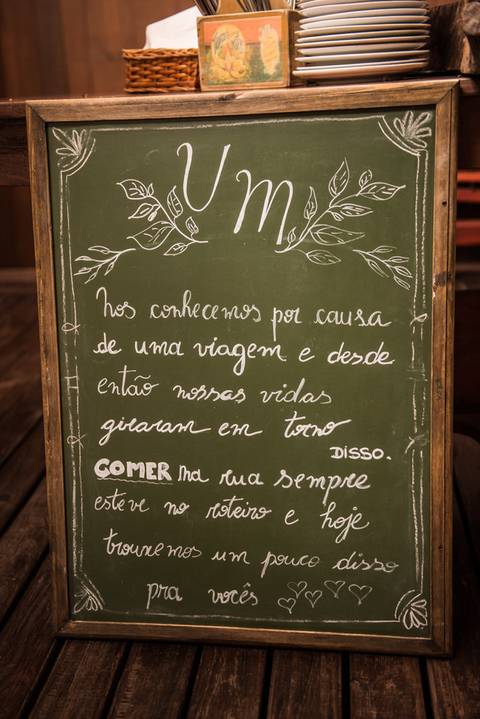 UM
Nos conhecemos por causa
de uma viagem e desde
então nossas vidas
giraram em torno
DISSO.
COMER na rua sempre
esteve no roteiro e hoje
trouxemos um pouco disso
pra vocês